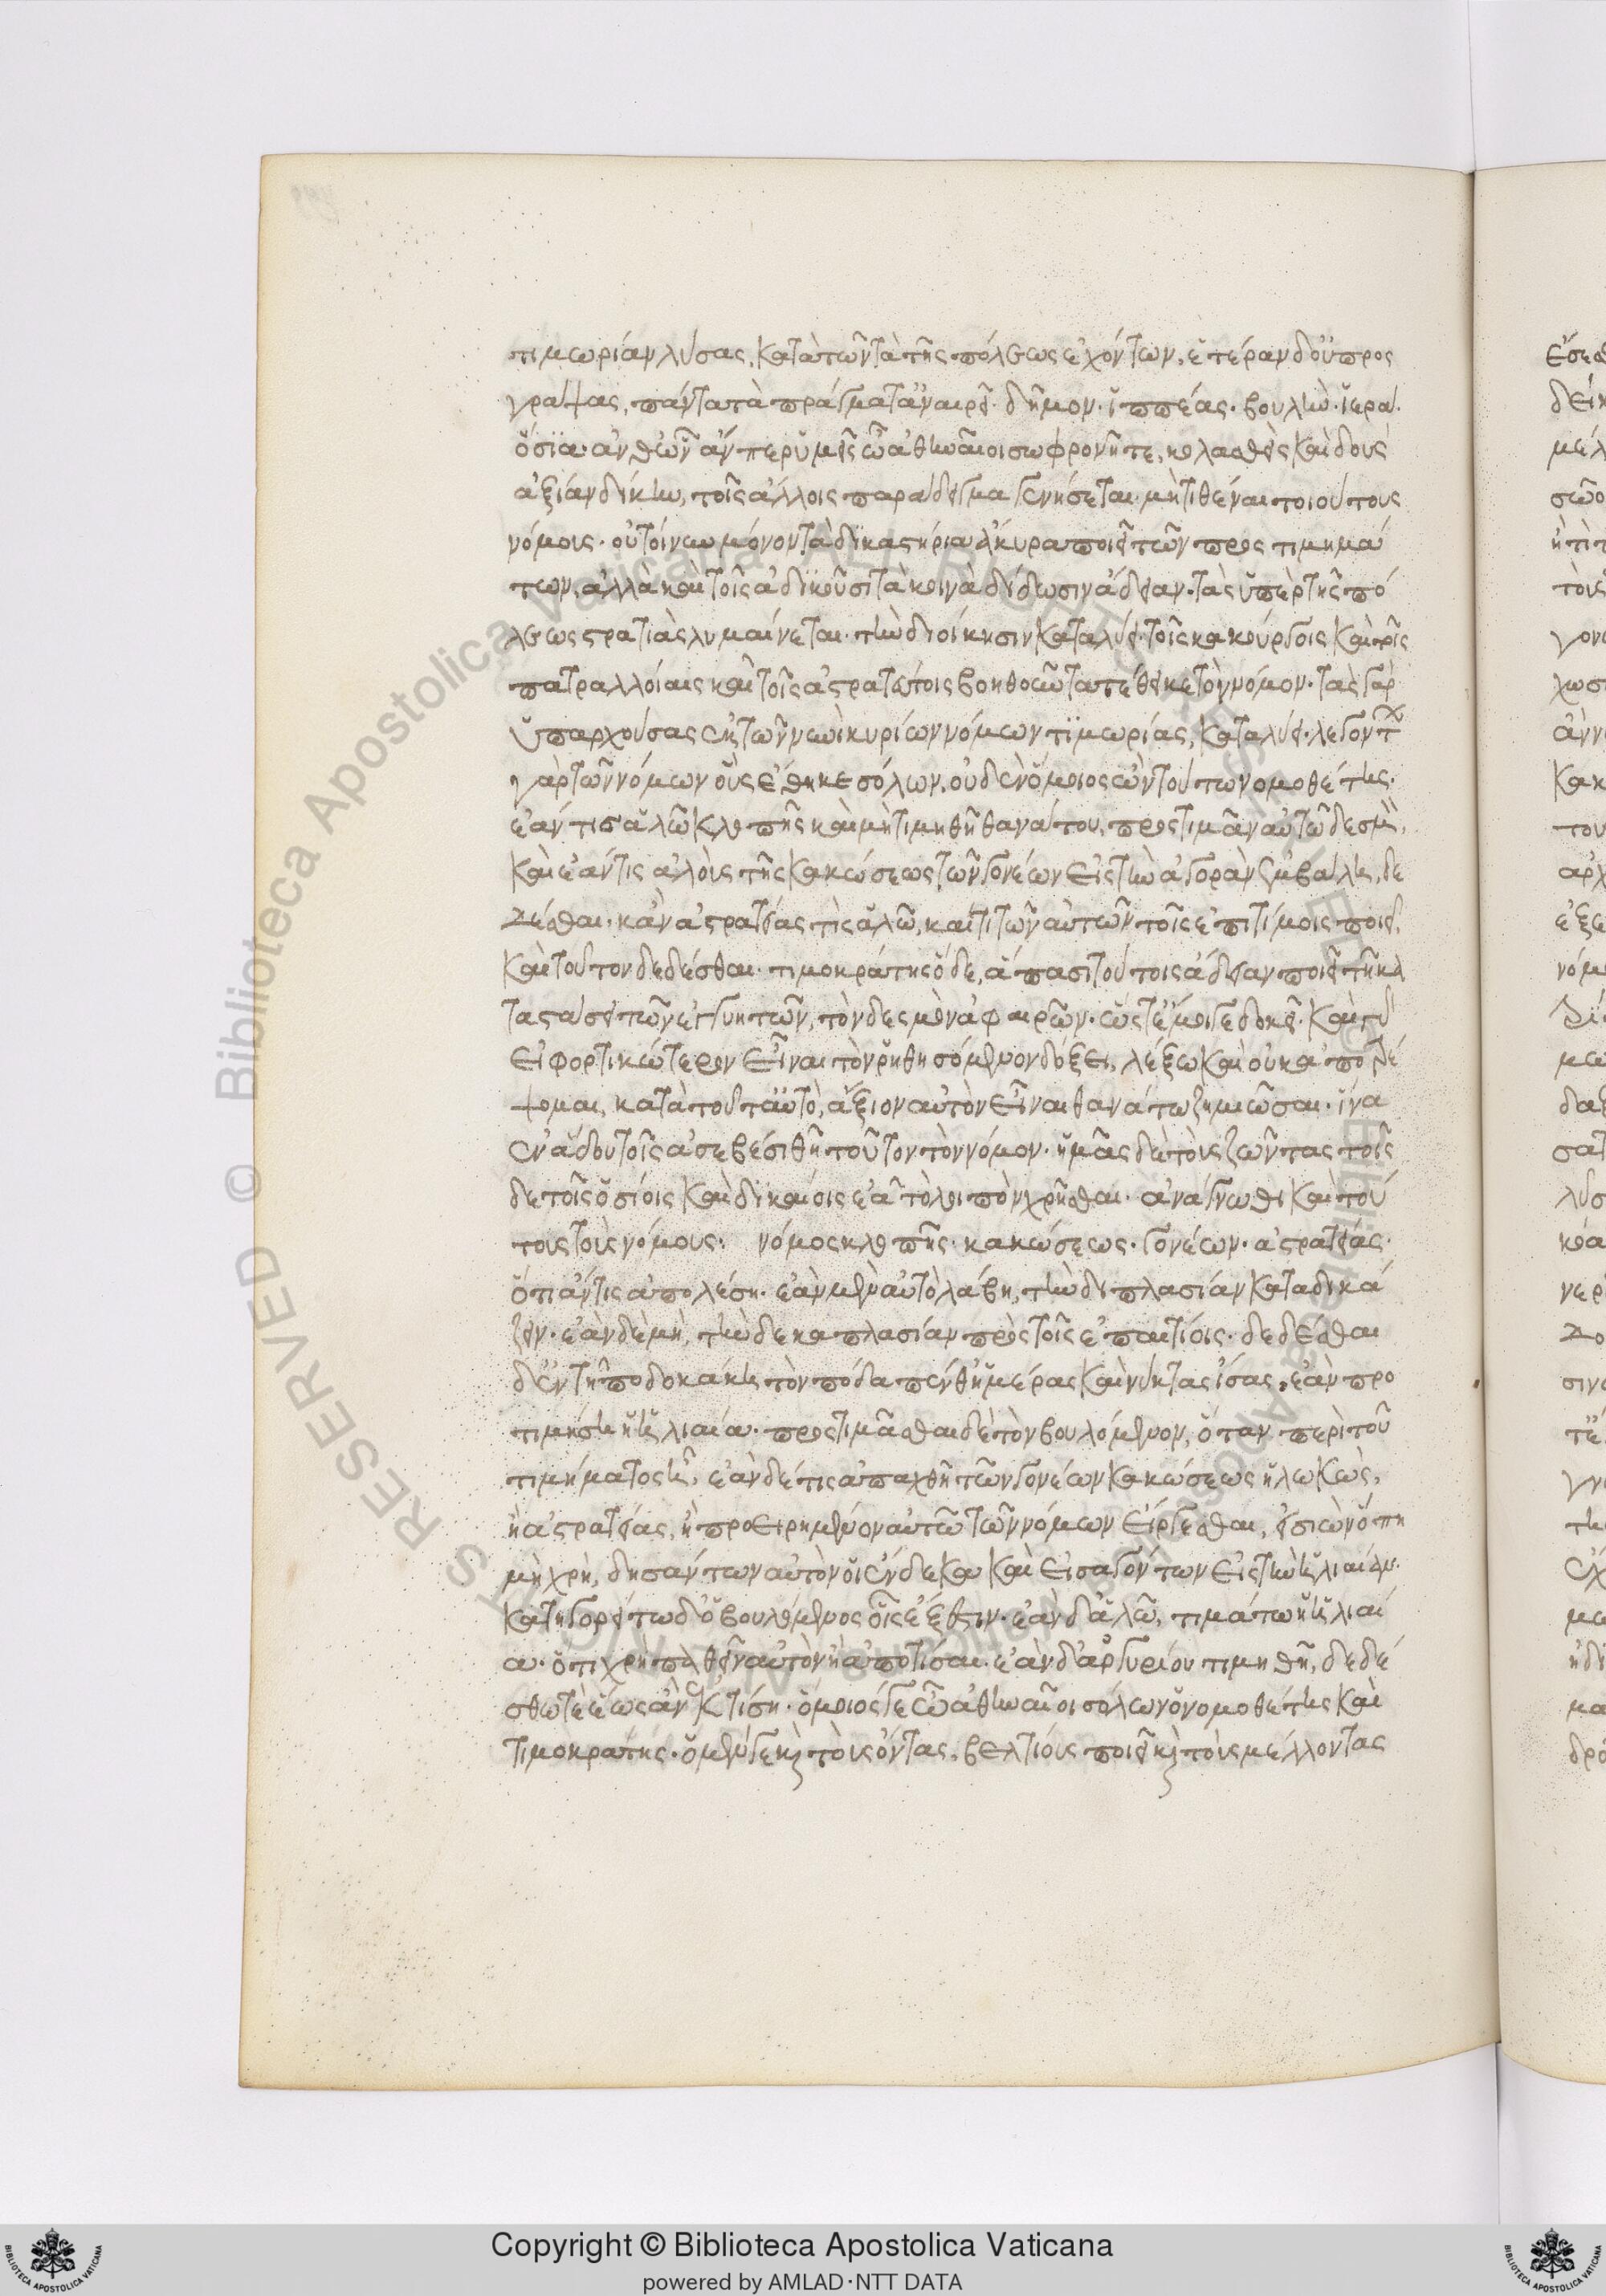 τιμωρίαν λύσας, κατὰ τῶν τὰ τῆς πόλεως ἐχόντων, ἑτέραν δ' οὐ προς
γράψας, πάντα τὰ πράγματα ἀναιρεῖ· δῆμον· ἱππέας· βουλὴν· ἱερά·
ὅσια· ἀνθ' ὧν ἄνπερ ὑμεῖς ὦ ἀθηναῖοι σωφρονῆτε, κολασθεὶς καὶ δοὺς
ἀξίαν δίκην, τοῖς ἄλλοις παράδειγμα γενήσεται μὴ τιθέναι τοιούτους
νόμους· οὐ τοίνυν μόνον τὰ δικαστήρια ἄκυρα ποιεῖ τῶν προστιμημά
των, ἀλλὰ καὶ τοῖς ἀδικοῦσι τὰ κοινὰ δίδωσιν ἄδειαν· τὰς ὑπὲρ τῆς πό
λεως στρατιὰς λυμαίνεται· τὴν διοίκησιν καταλύει· τοῖς κακούργοις καὶ τοῖς
πατραλλοίαις καὶ τοῖς ἀστρατεύτοις βοηθοῦντα τέθεικε τὸν νόμον· τὰς γὰρ
ὑπαρχούσας ἐκ τῶν νῦν κυρίων νόμων τιμωρίας, καταλύει· λεγόντων
γὰρ τῶν νόμων οὓς ἔθηκε σόλων, οὐδὲν ὅμοιος ὢν τούτῳ νομοθέτης·
ἐάν τις ἁλῷ κλοπῆς καὶ μὴ τιμηθῇ θανάτου, προστιμᾶν αὐτῷ δεσμὸν,
καὶ ἐάν τις ἁλοὺς τῆς κακώσεως τῶν γονέων εἰς τὴν ἀγορὰν ἐμβάλῃ, δε
δέσθαι· κἂν ἀστρατείας τις ἁλῷ, καί τι τῶν αὐτῶν τοῖς ἐπιτίμοις ποιεῖ,
καὶ τοῦτον δεδέσθαι· τιμοκράτης ὅδε, ἅπασι τούτοις ἄδειαν ποιεῖ τῇ κα
ταστάσει τῶν ἐγγυητῶν, τὸν δεσμὸν ἀφαιρῶν· ὥστ' ἔμοιγε δοκεῖ· καὶ γὰρ
εἰ φορτικώτερον εἶναι τὸ ῥηθησόμενον δόξει, λέξω καὶ οὐκ ἀποτρέ
ψομαι, κατὰ τοῦτ' αὐτὸ, ἄξιον αὐτὸν εἶναι θανάτῳ ζημιῶσαι· ἵνα
ἐν ἅδου τοῖς ἀσεβέσι θῇ τοῦτον τὸν νόμον· ἡμᾶς δὲ τοὺς ζῶντας τοῖς
δε τοῖς ὁσίοις καὶ δικαίοις ἐᾷ τὸ λοιπὸν χρῆσθαι· ἀνάγνωθι καὶ τού
τους τοὺς νόμους· νόμος κλοπῆς· κακώσεως· γονέων· ἀστρατείας·
ὅ τι ἄν τις ἀπολέσῃ· ἐὰν μὲν αὐτὸ λάβῃ, τὴν διπλασίαν καταδικά
ζειν· ἐὰν δὲ μὴ, τὴν δεκαπλασίαν πρὸς τοῖς ἐπαιτίοις· δεδέσθαι
δ' ἐν τῇ ποδοκάκῃ τὸν πόδα πένθ' ἡμέρας καὶ νύκτας ἴσας, ἐὰν προ
τιμήσῃ ἡ ἡλιαία· προστιμᾶσθαι δὲ τὸν βουλόμενον, ὅταν περὶ τοῦ
τιμήματος ᾖ, ἐὰν δέ τις ἀπαχθῇ τῶν γονέων κακώσεως ἡλωκὼς,
ἢ ἀστρατείας, ἢ προειρημένον αὐτῷ τῶν νόμων εἴργεσθαι, εἰσιὼν ὅπη
μὴ χρὴ, δησάντων αὐτὸν οἱ ἕνδεκα καὶ εἰσαγόντων εἰς τὴν ἡλιαίαν·
κατηγορείτω δ' ὁ βουλόμενος οἷς ἔξεστιν· ἐὰν δ' ἁλῷ, τιμάτω ἡ ἡλιαί
α· ὅ τι χρὴ παθεῖν αὐτὸν ἢ ἀποτῖσαι· ἐὰν δ' ἀργυρίου τιμηθῇ, δεδέ
σθω τε ἕως ἂν ἐκτίσῃ· ὅμοιός γε ὦ ἀθηναῖοι σόλων ὁ νομοθέτης καὶ
τιμοκράτης· ὁ μέν γε καὶ τοὺς ὄντας, βελτίους ποιεῖ καὶ τοὺς μέλλοντας
Copyright © Biblioteca Apostolica Vaticana
powered by AMLAD·NTT DATA